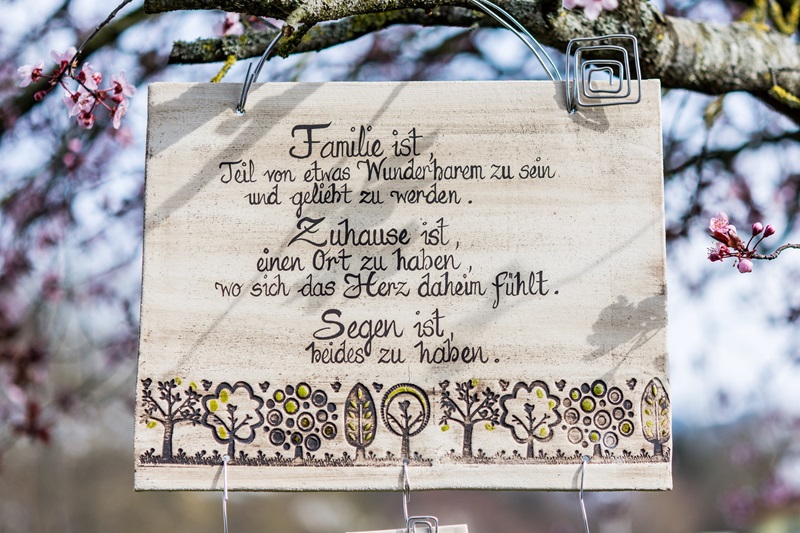 Familie ist,
Teil von etwas Wunderbarem zu sein
und geliebt zu werden.
Zuhause ist,
einen Ort zu haben,
wo sich das Herz daheim fühlt.
Segen ist,
beides zu haben.